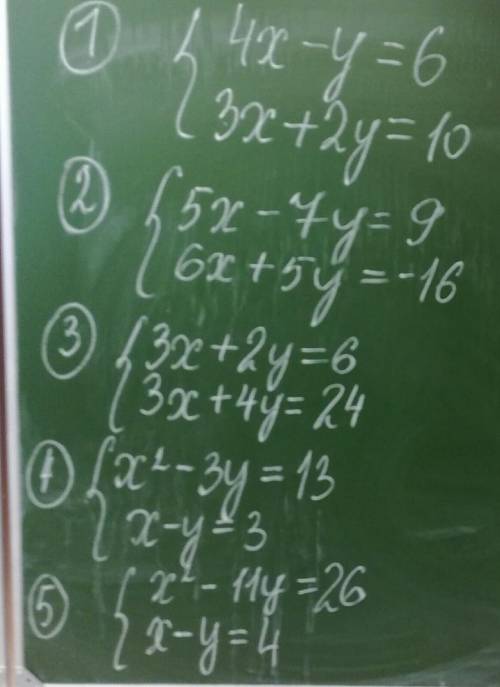 ① 4x - y = 6
3x + 2y = 10
② 5x - 7y = 9
6x + 5y = -16
③ 3x + 2y = 6
3x + 4y = 24
④ x² - 3y = 13
x - y = 3
⑤ x² - 11y = 26
x - y = 4